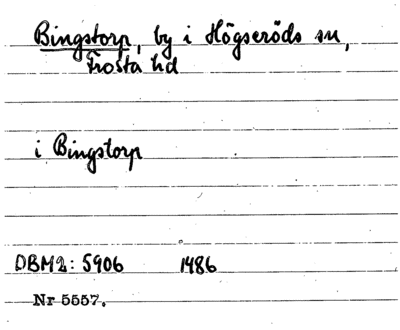 Bingstorp, by i Högseröds sn,
Frosta hd
i Bingstorp
DBM2: 5906 1486
Nr 5557.